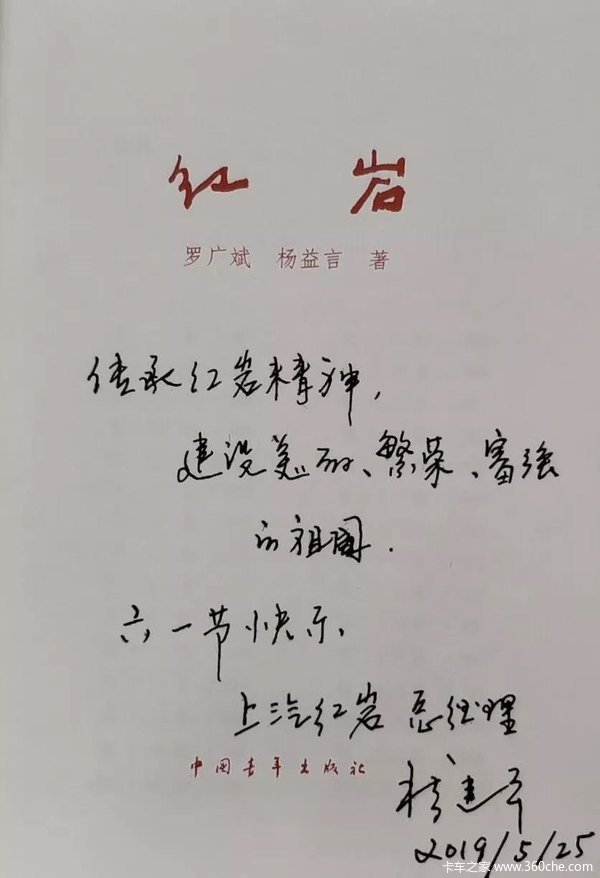 红岩
罗广斌 杨益言 著
传承红岩精神,
建设美丽、繁荣、富强
的祖国.
六一节快乐.
上汽红岩 总经理
中国青年出版社
建平
2019/5/25
卡车之家 www.360che.com